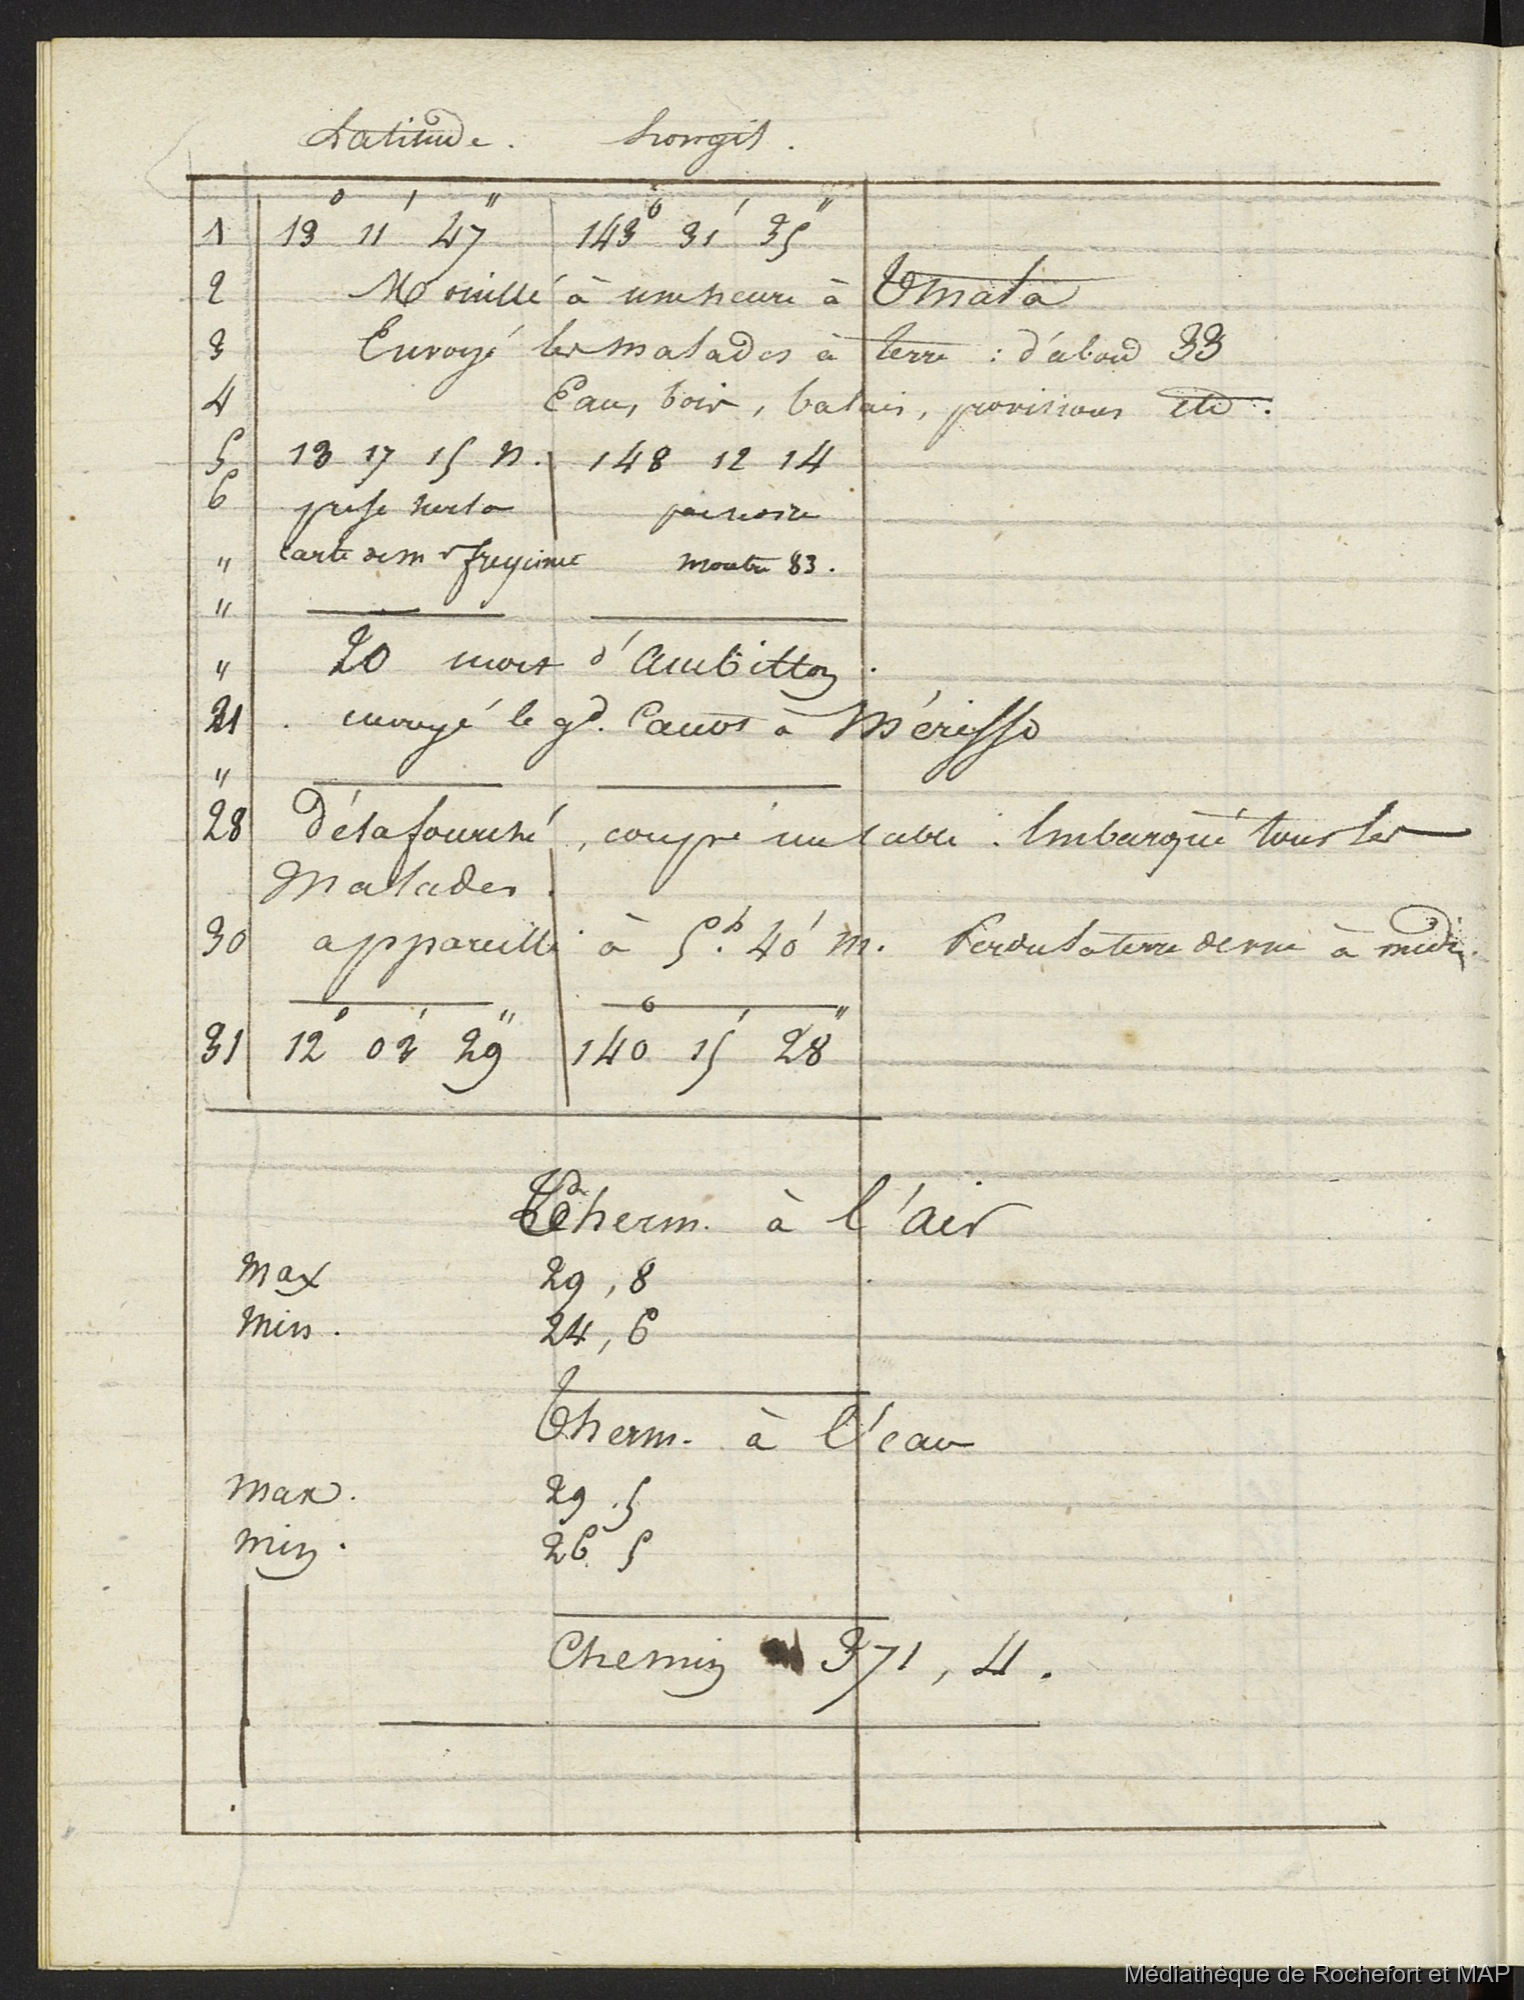 Latitude. Longit.
1 13° 11' 47" 143° 31' 35"
2 Mouillé à une heure à Umata
3 Envoyé les malades à terre : d'abord 33
4 Eau, bois, balais, provisions etc.
5 13 17 15 N. 148 12 14
6 prise sur la par notre
" carte de Mr freycinet montre 83.
"
" 20 mort d'Ambitton.
21 . envoyé le gd. Canot à Mérisso
"
28 Désafourché, coupé un cable. Embarqué tous les
Malades.
30 appareillé à 5.h 40' m. Perdu la terre de vue à midi.
31 12° 02' 29" 140° 15' 28"
Therm. à l'air
Max 29, 8
Min. 24, 6
Therm. à l'eau
Max. 29. 5
Min. 26 5
Chemin 371, 4.
Médiathèque de Rochefort et MAP